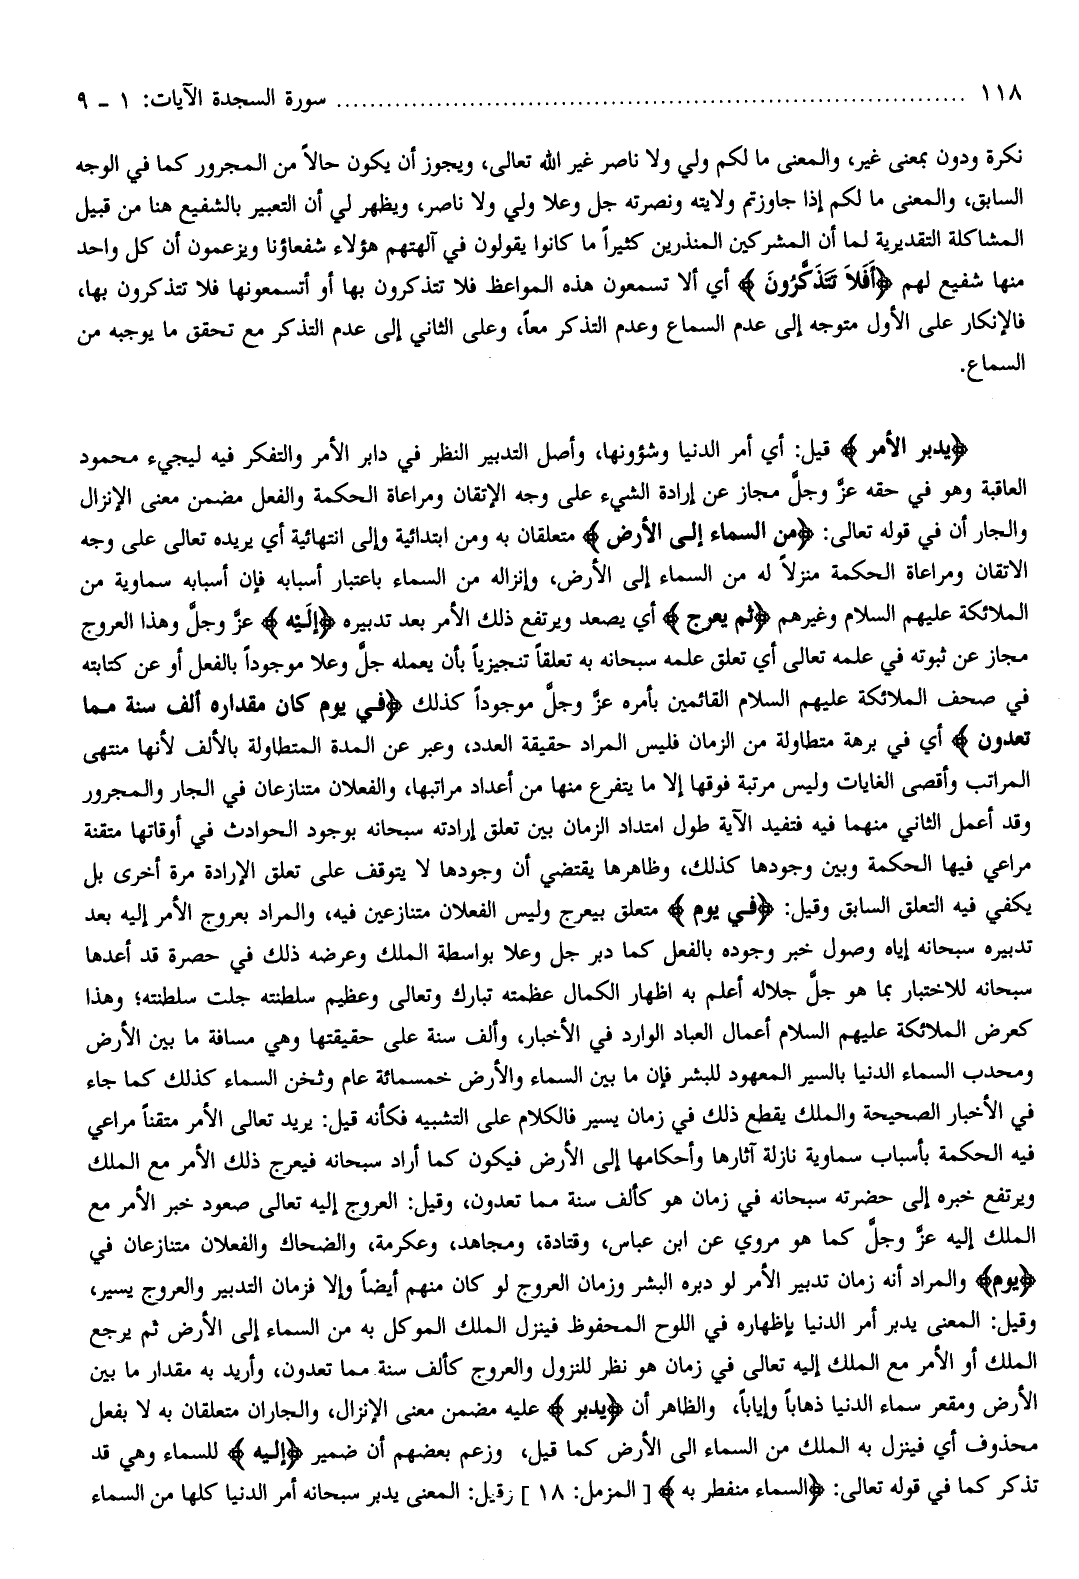 ١١٨ ........................................................ سورة السجدة الآيات: ١ - ٩
نكرة ودون بمعنى غير، والمعنى ما لكم ولي ولا ناصر غير الله تعالى، ويجوز أن يكون حالاً من المجرور كما في الوجه
السابق، والمعنى ما لكم إذا جاوزتم ولايته ونصرته جل وعلا ولي ولا ناصر، ويظهر لي أن التعبير بالشفيع هنا من قبيل
المشاكلة التقديرية لما أن المشركين المنذرين كثيراً ما كانوا يقولون في آلهتهم هؤلاء شفعاؤنا ويزعمون أن كل واحد
منها شفيع لهم ﴿أَفَلاَ تَتَذَكَّرُونَ﴾ أي ألا تسمعون هذه المواعظ فلا تتذكرون بها أو أتسمعونها فلا تتذكرون بها،
فالإنكار على الأول متوجه إلى عدم السماع وعدم التذكر معاً، وعلى الثاني إلى عدم التذكر مع تحقق ما يوجبه من
السماع.
﴿يدبر الأمر﴾ قيل: أي أمر الدنيا وشؤونها، وأصل التدبير النظر في دابر الأمر والتفكر فيه ليجيء محمود
العاقبة وهو في حقه عزَّ وجلَّ مجاز عن إرادة الشيء على وجه الإتقان ومراعاة الحكمة والفعل مضمن معنى الإنزال
والجار أن في قوله تعالى: ﴿من السماء إلى الأرض﴾ متعلقان به ومن ابتدائية وإلى انتهائية أي يريده تعالى على وجه
الاتقان ومراعاة الحكمة منزلاً له من السماء إلى الأرض، وإنزاله من السماء باعتبار أسبابه فإن أسبابه سماوية من
الملائكة عليهم السلام وغيرهم ﴿ثم يعرج﴾ أي يصعد ويرتفع ذلك الأمر بعد تدبيره ﴿إلَيْه﴾ عزَّ وجلَّ وهذا العروج
مجاز عن ثبوته في علمه تعالى أي تعلق علمه سبحانه به تعلقاً تنجيزياً بأن يعمله جلَّ وعلا موجوداً بالفعل أو عن كتابته
في صحف الملائكة عليهم السلام القائمين بأمره عزَّ وجلَّ موجوداً كذلك ﴿في يوم كان مقداره ألف سنة مما
تعدون﴾ أي في برهة متطاولة من الزمان فليس المراد حقيقة العدد، وعبر عن المدة المتطاولة بالألف لأنها منتهى
المراتب وأقصى الغايات وليس مرتبة فوقها إلا ما يتفرع منها من أعداد مراتبها، والفعلان متنازعان في الجار والمجرور
وقد أعمل الثاني منهما فيه فتفيد الآية طول امتداد الزمان بين تعلق إرادته سبحانه بوجود الحوادث في أوقاتها متقنة
مراعي فيها الحكمة وبين وجودها كذلك، وظاهرها يقتضي أن وجودها لا يتوقف على تعلق الإرادة مرة أخرى بل
يكفي فيه التعلق السابق وقيل: ﴿في يوم﴾ متعلق بيعرج وليس الفعلان متنازعين فيه، والمراد بعروج الأمر إليه بعد
تدبيره سبحانه إياه وصول خبر وجوده بالفعل كما دبر جل وعلا بواسطة الملك وعرضه ذلك في حصرة قد أعدها
سبحانه للاختبار بما هو جلَّ جلاله أعلم به اظهار الكمال عظمته تبارك وتعالى وعظيم سلطنته جلت سلطنته؛ وهذا
كعرض الملائكة عليهم السلام أعمال العباد الوارد في الأخبار، وألف سنة على حقيقتها وهي مسافة ما بين الأرض
ومحدب السماء الدنيا بالسير المعهود للبشر فإن ما بين السماء والأرض خمسمائة عام وثخن السماء كذلك كما جاء
في الأخبار الصحيحة والملك يقطع ذلك في زمان يسير فالكلام على التشبيه فكأنه قيل: يريد تعالى الأمر متقناً مراعي
فيه الحكمة بأسباب سماوية نازلة آثارها وأحكامها إلى الأرض فيكون كما أراد سبحانه فيعرج ذلك الأمر مع الملك
ويرتفع خبره إلى حضرته سبحانه في زمان هو كألف سنة مما تعدون، وقيل: العروج إليه تعالى صعود خبر الأمر مع
الملك إليه عزَّ وجلَّ كما هو مروي عن ابن عباس، وقتادة، ومجاهد، وعكرمة، والضحاك والفعلان متنازعان في
﴿يوم﴾ والمراد أنه زمان تدبير الأمر لو دبره البشر وزمان العروج لو كان منهم أيضاً وإلا فزمان التدبير والعروج يسير،
وقيل: المعنى يدبر أمر الدنيا بإظهاره في اللوح المحفوظ فينزل الملك الموكل به من السماء إلى الأرض ثم يرجع
الملك أو الأمر مع الملك إليه تعالى في زمان هو نظر للنزول والعروج كألف سنة مما تعدون، وأريد به مقدار ما بين
الأرض ومقعر سماء الدنيا ذهاباً وإياباً، والظاهر أن ﴿يدبر﴾ عليه مضمن معنى الإنزال، والجاران متعلقان به لا بفعل
محذوف أي فينزل به الملك من السماء الى الأرض كما قيل، وزعم بعضهم أن ضمير ﴿إليه﴾ للسماء وهي قد
تذكر كما في قوله تعالى: ﴿السماء منفطر به﴾ [ المزمل: ١٨ ] وقيل: المعنى يدبر سبحانه أمر الدنيا كلها من السماء